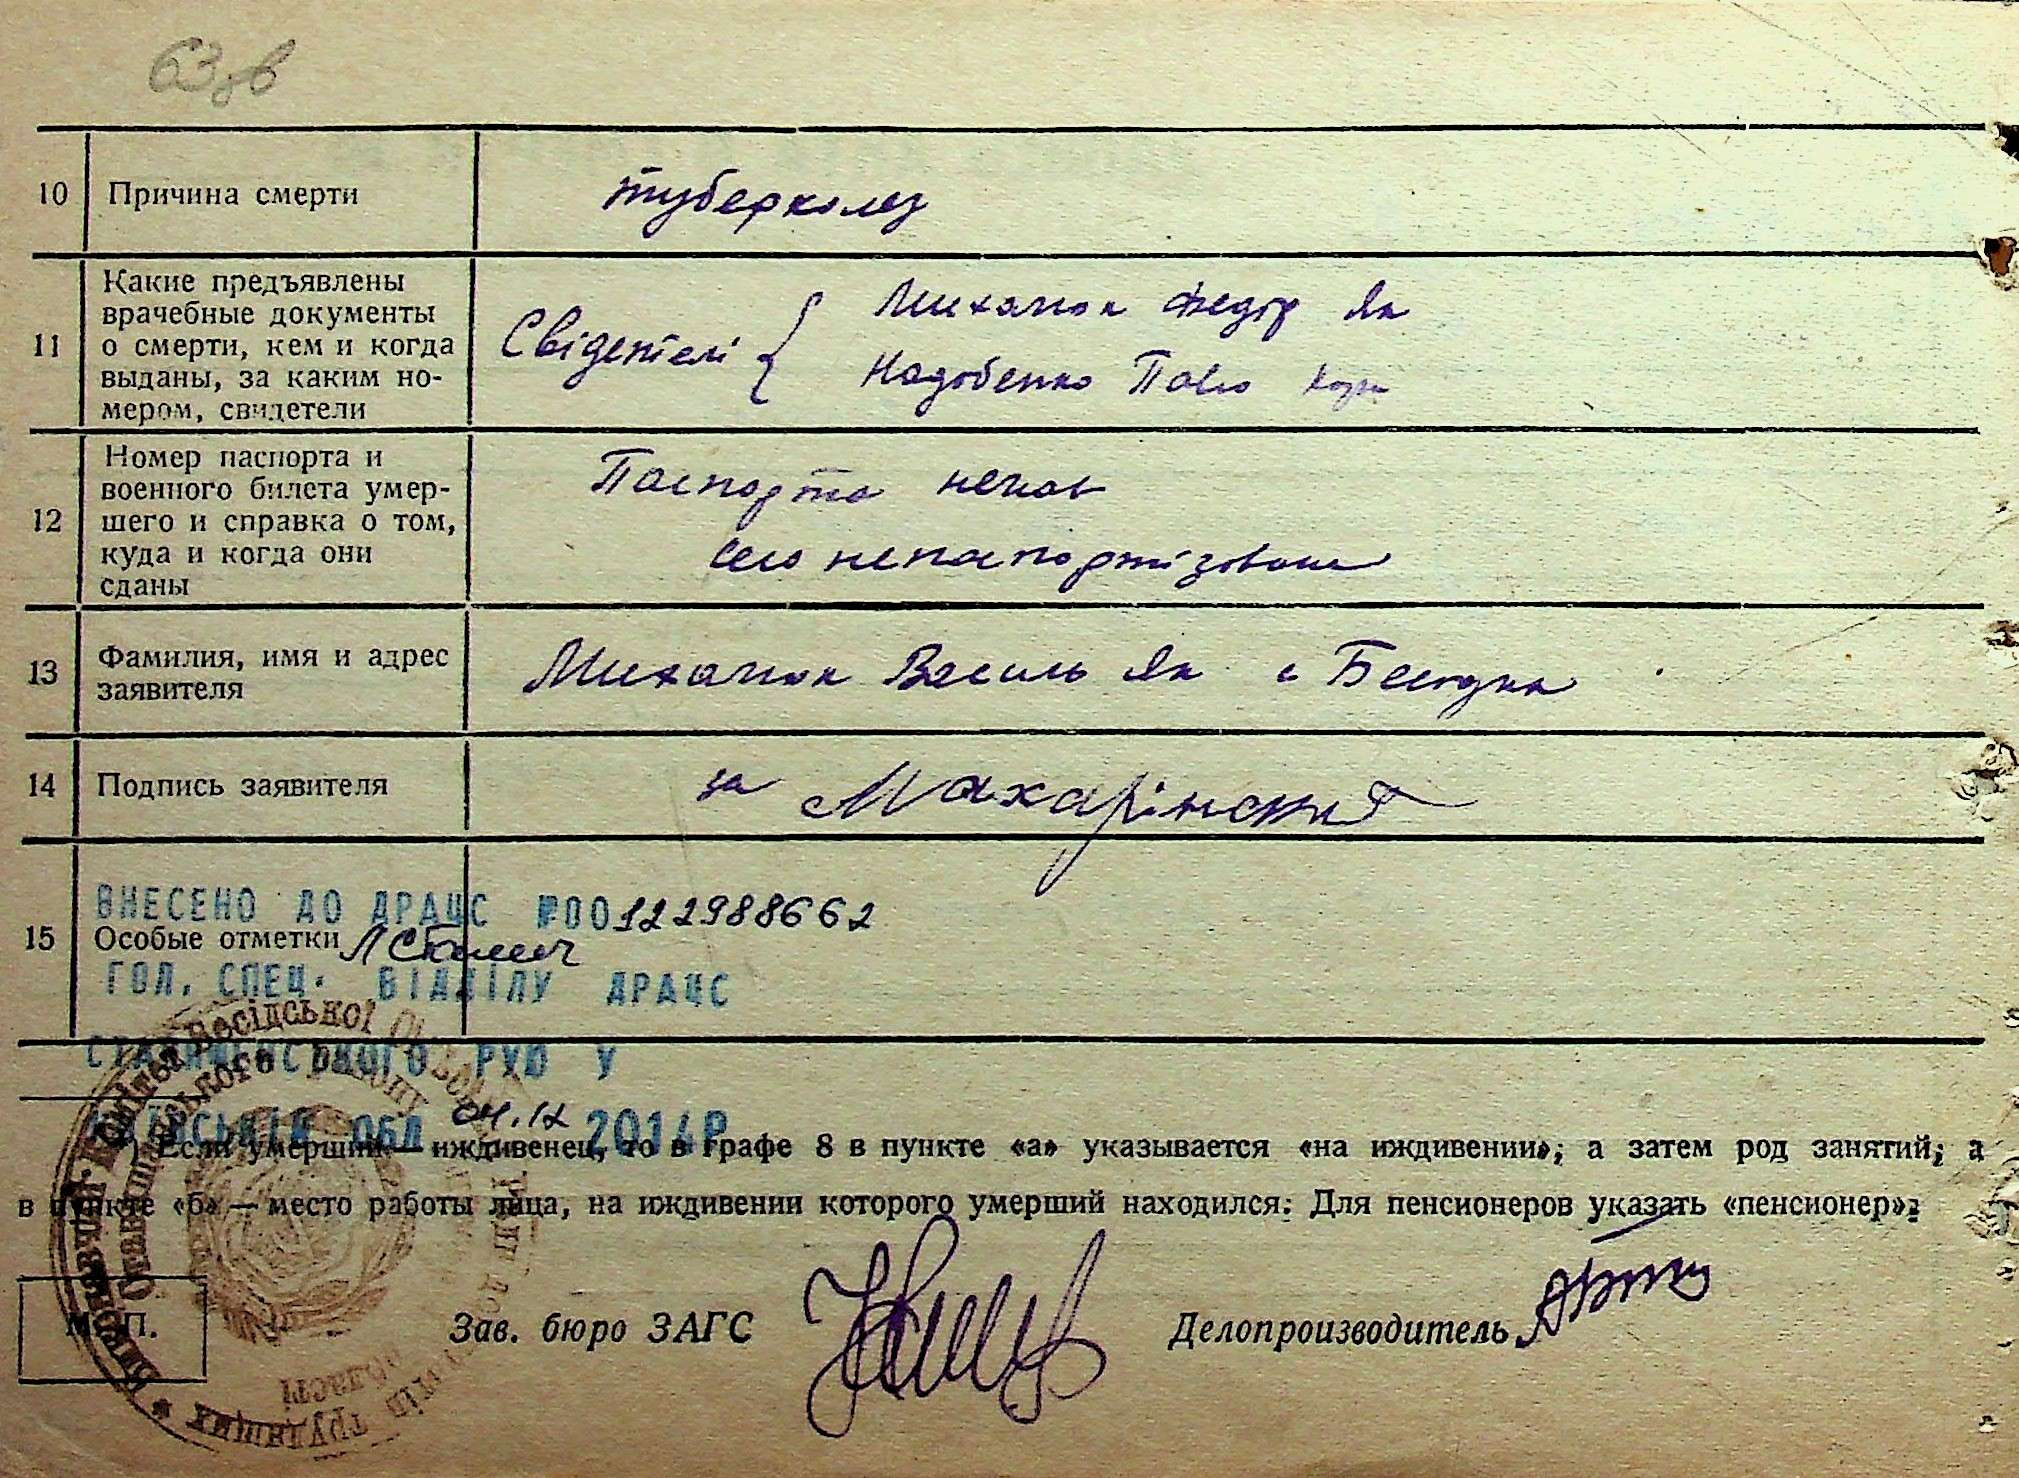 63зв
10 Причина смерти туберколез
11 Какие предъявлены
врачебные документы
о смерти, кем и когда
выданы, за каким но-
мером, свидетели
Свідетелі { Миханюк Федір Як
Надобенко Павло
12 Номер паспорта и
военного билета умер-
шего и справка о том,
куда и когда они
сданы
Паспорта немає
село непаспортізоване
13 Фамилия, имя и адрес
заявителя
Миханюк Василь Як с Бесідка
14 Подпись заявителя за Махарінский
ВНЕСЕНО ДО ДРАЦС №00122988662
15 Особые отметки
ГОЛ. СПЕЦ. ВІДДІЛУ ДРАЦС
СТАВИЩЕНСЬКОГО РУЮ У
КИЇВСЬКІЙ ОБЛ 04.12 2014Р
) Если умерший — иждивенец, то в графе 8 в пункте «а» указывается «на иждивении»; а затем род занятий; а
в пункте «б» — место работы лица, на иждивении которого умерший находился. Для пенсионеров указать «пенсионер».
М. П.
Зав. бюро ЗАГС
Делопроизводитель
Виконавчий Комітет Бесідської
Ставищенського району
області
трудящих